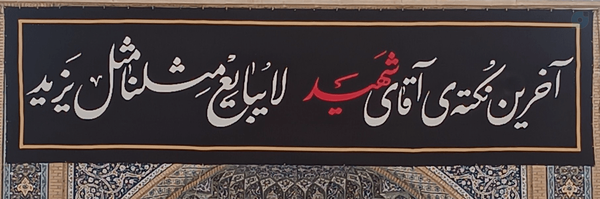 آخرین نکته‌ی آقای شهید لایُبایِعُ مِثلنا مثل یَزید